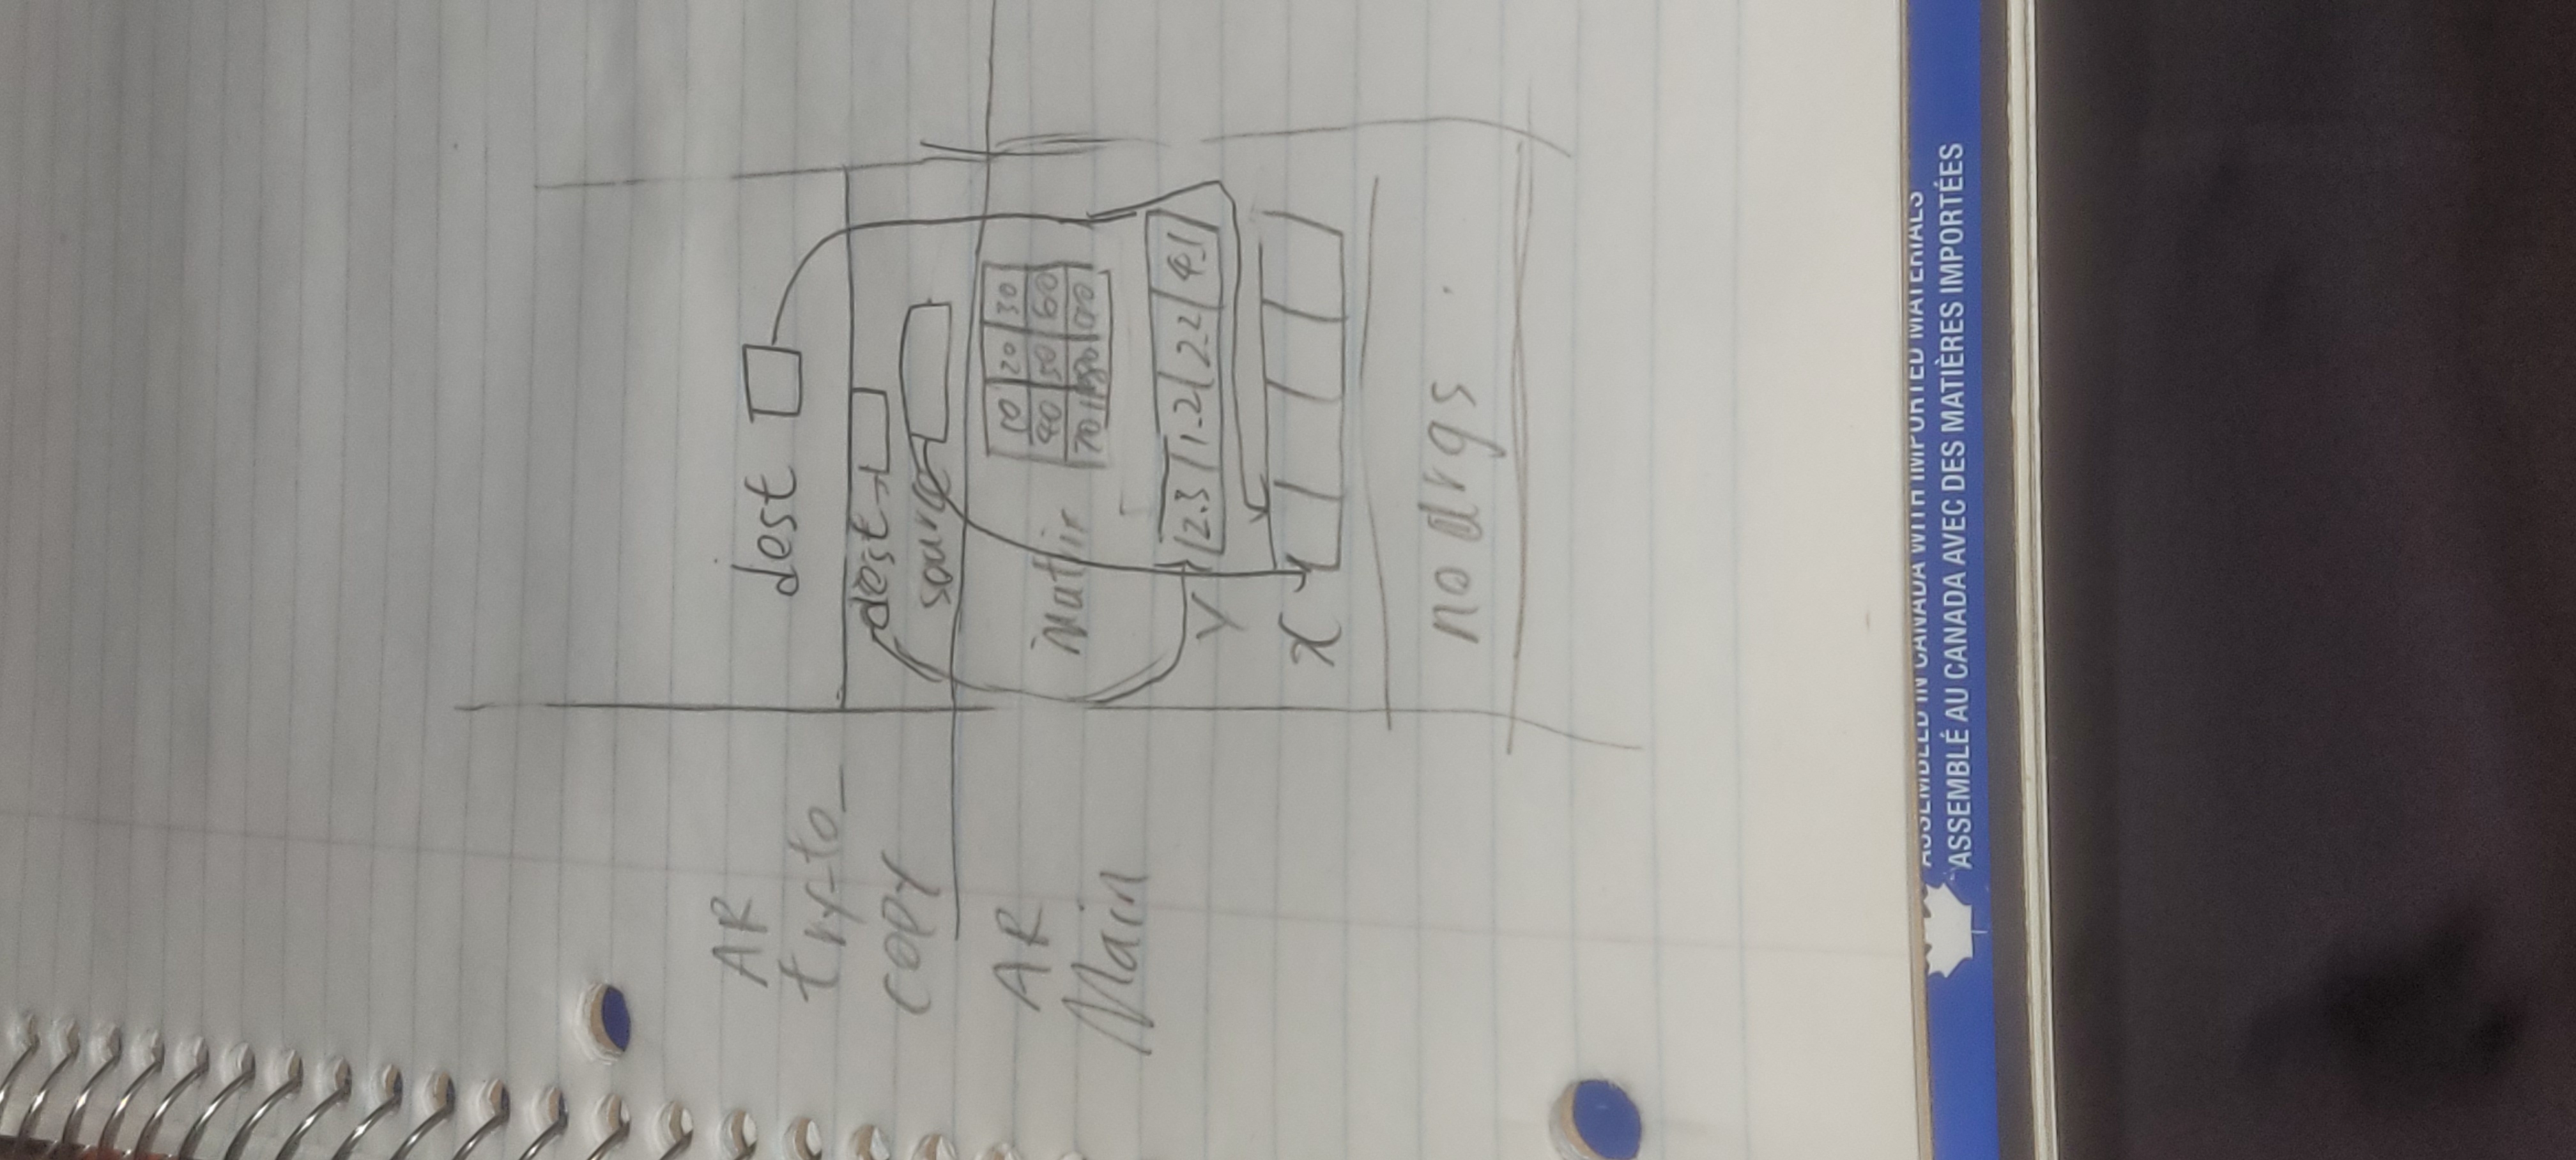 AR
try-to_
COPY
dest
dest
source
AR
Main
10 20 30
40 50 60
70 80 90
Y 2.3 1.2 2.2 4.1
X
no args
ASSEMBLED IN CANADA WITH IMPORTED MATERIALS
ASSEMBLÉ AU CANADA AVEC DES MATIÈRES IMPORTÉES